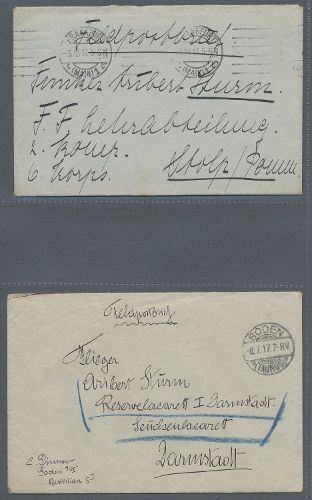 Feldpostbrief
SODEN
5.12.17.5-6
(TAUNUS)
Funker Aribert Sturm.
F. F. Lehrabteilung.
2. Komp.
6 Korps.
Stolp/Pomm.
Feldpostbrief
SODEN
-8.7.17.7-8V.
(TAUNUS)
Flieger
Aribert Sturm
Reservelazarett I Darmstadt
Seuchenlazarett
Darmstadt
Soden